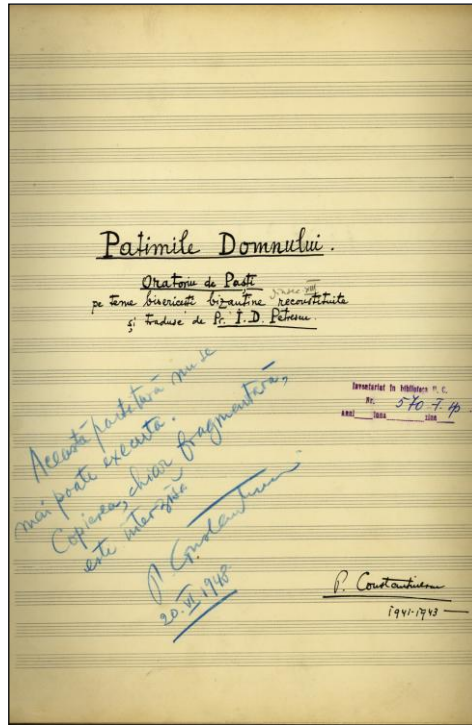 Patimile Domnului.
Oratoriu de Paști
pe teme bisericești bizantine reconstituite
și traduse de Pr. I. D. Petrescu
Această partitură nu se
mai poate executa.
Copierea, chiar fragmentară,
este interzisă
P. Constantinescu
20.VI 1948
Inventariat în biblioteca U. C.
Nr. 570
anul luna ziua
P. Constantinescu
1941-1943